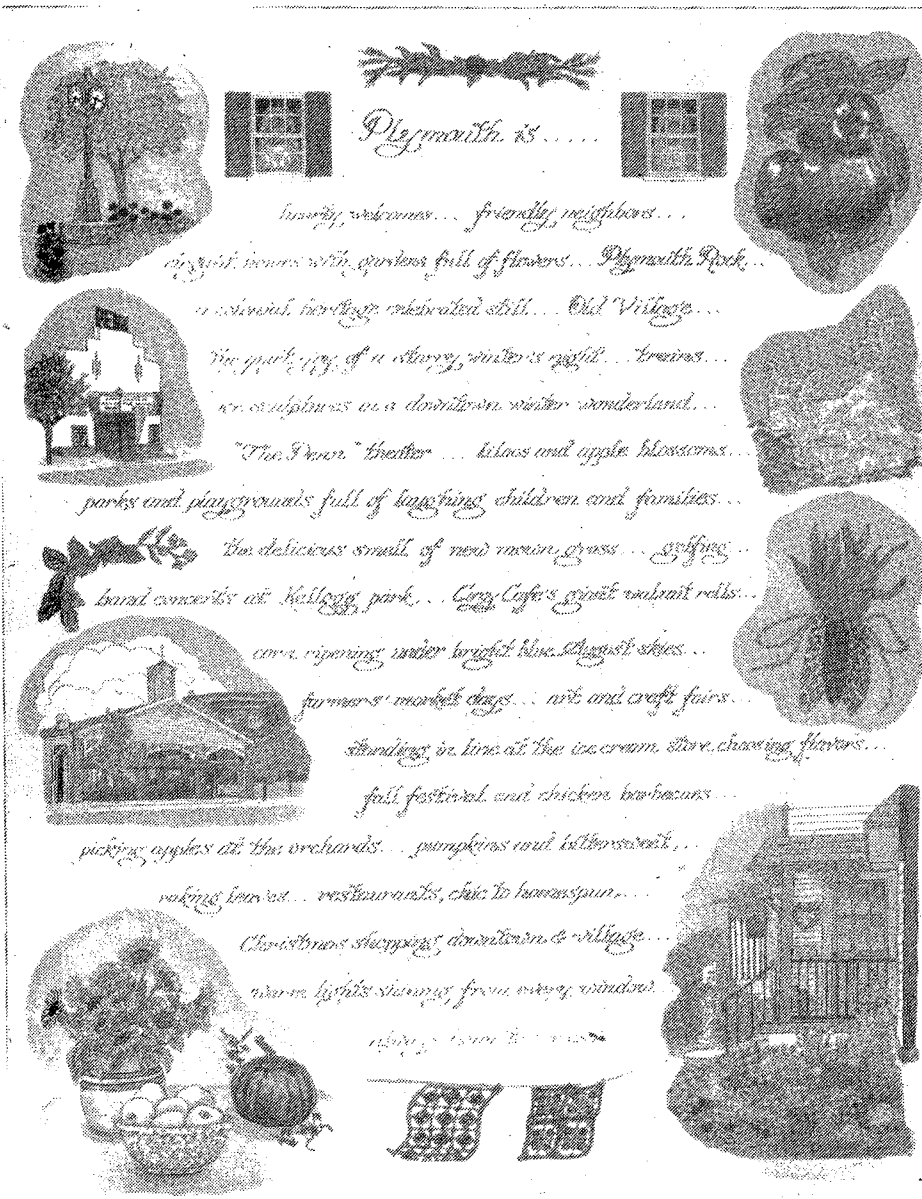 Plymouth is.....
hearty welcomes... friendly neighbors...
elegant homes with gardens full of flowers... Plymouth Rock...
a colonial heritage celebrated still... Old Village...
The quiet joy of a starry winter's night... trains...
ice sculptures in a downtown winter wonderland...
"The Penn" theater ... lilacs and apple blossoms...
parks and playgrounds full of laughing children and families...
the delicious smell of new mown grass... golfing...
band concerts at Kellogg park... Cozy Cafe's giant walnut rolls...
corn ripening under bright blue August skies...
farmers' market days... art and craft fairs...
standing in line at the ice cream store choosing flavors...
fall festival and chicken barbecues...
picking apples at the orchards... pumpkins and bittersweet...
raking leaves... restaurants, chic to homespun,...
Christmas shopping downtown & village...
warm lights shining from every window...